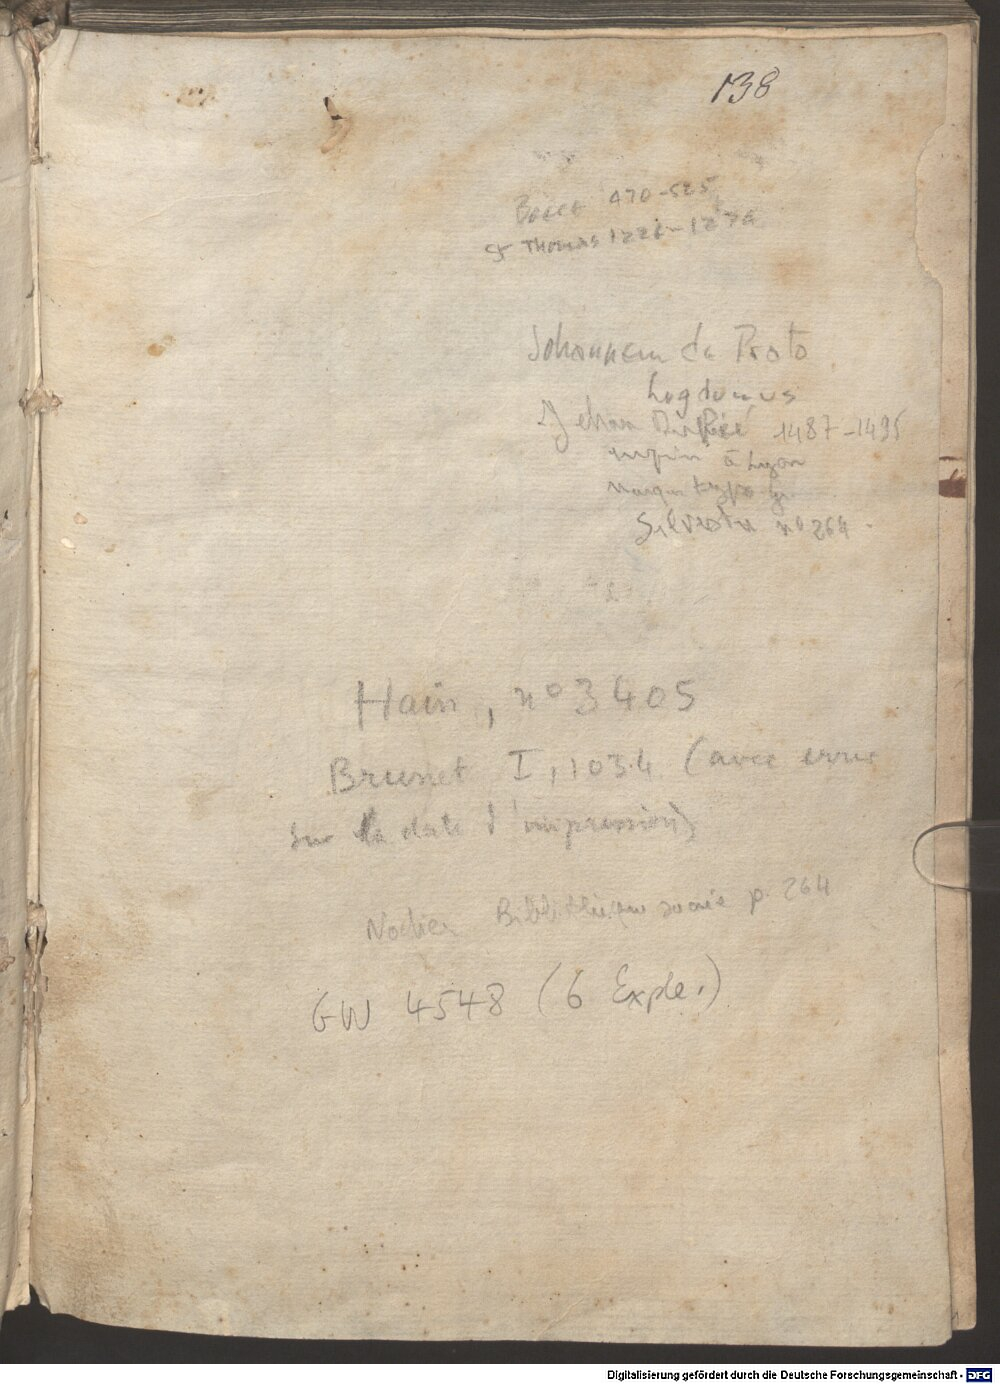 138
Boece 470-525
St Thomas 1226-1274
Johannem de Prato
Lugdunus
Jehan Dupré 1487-1495
imprim à Lyon
marque typogr.
Silvestre nº 264.
Hain, nº 3405
Brunet I, 1034 (avec erreur
sur la date d'impression)
Nodier Bibliothèque sacrée p. 264
GW 4548 (6 Exple.)
Digitalisierung gefördert durch die Deutsche Forschungsgemeinschaft - DFG